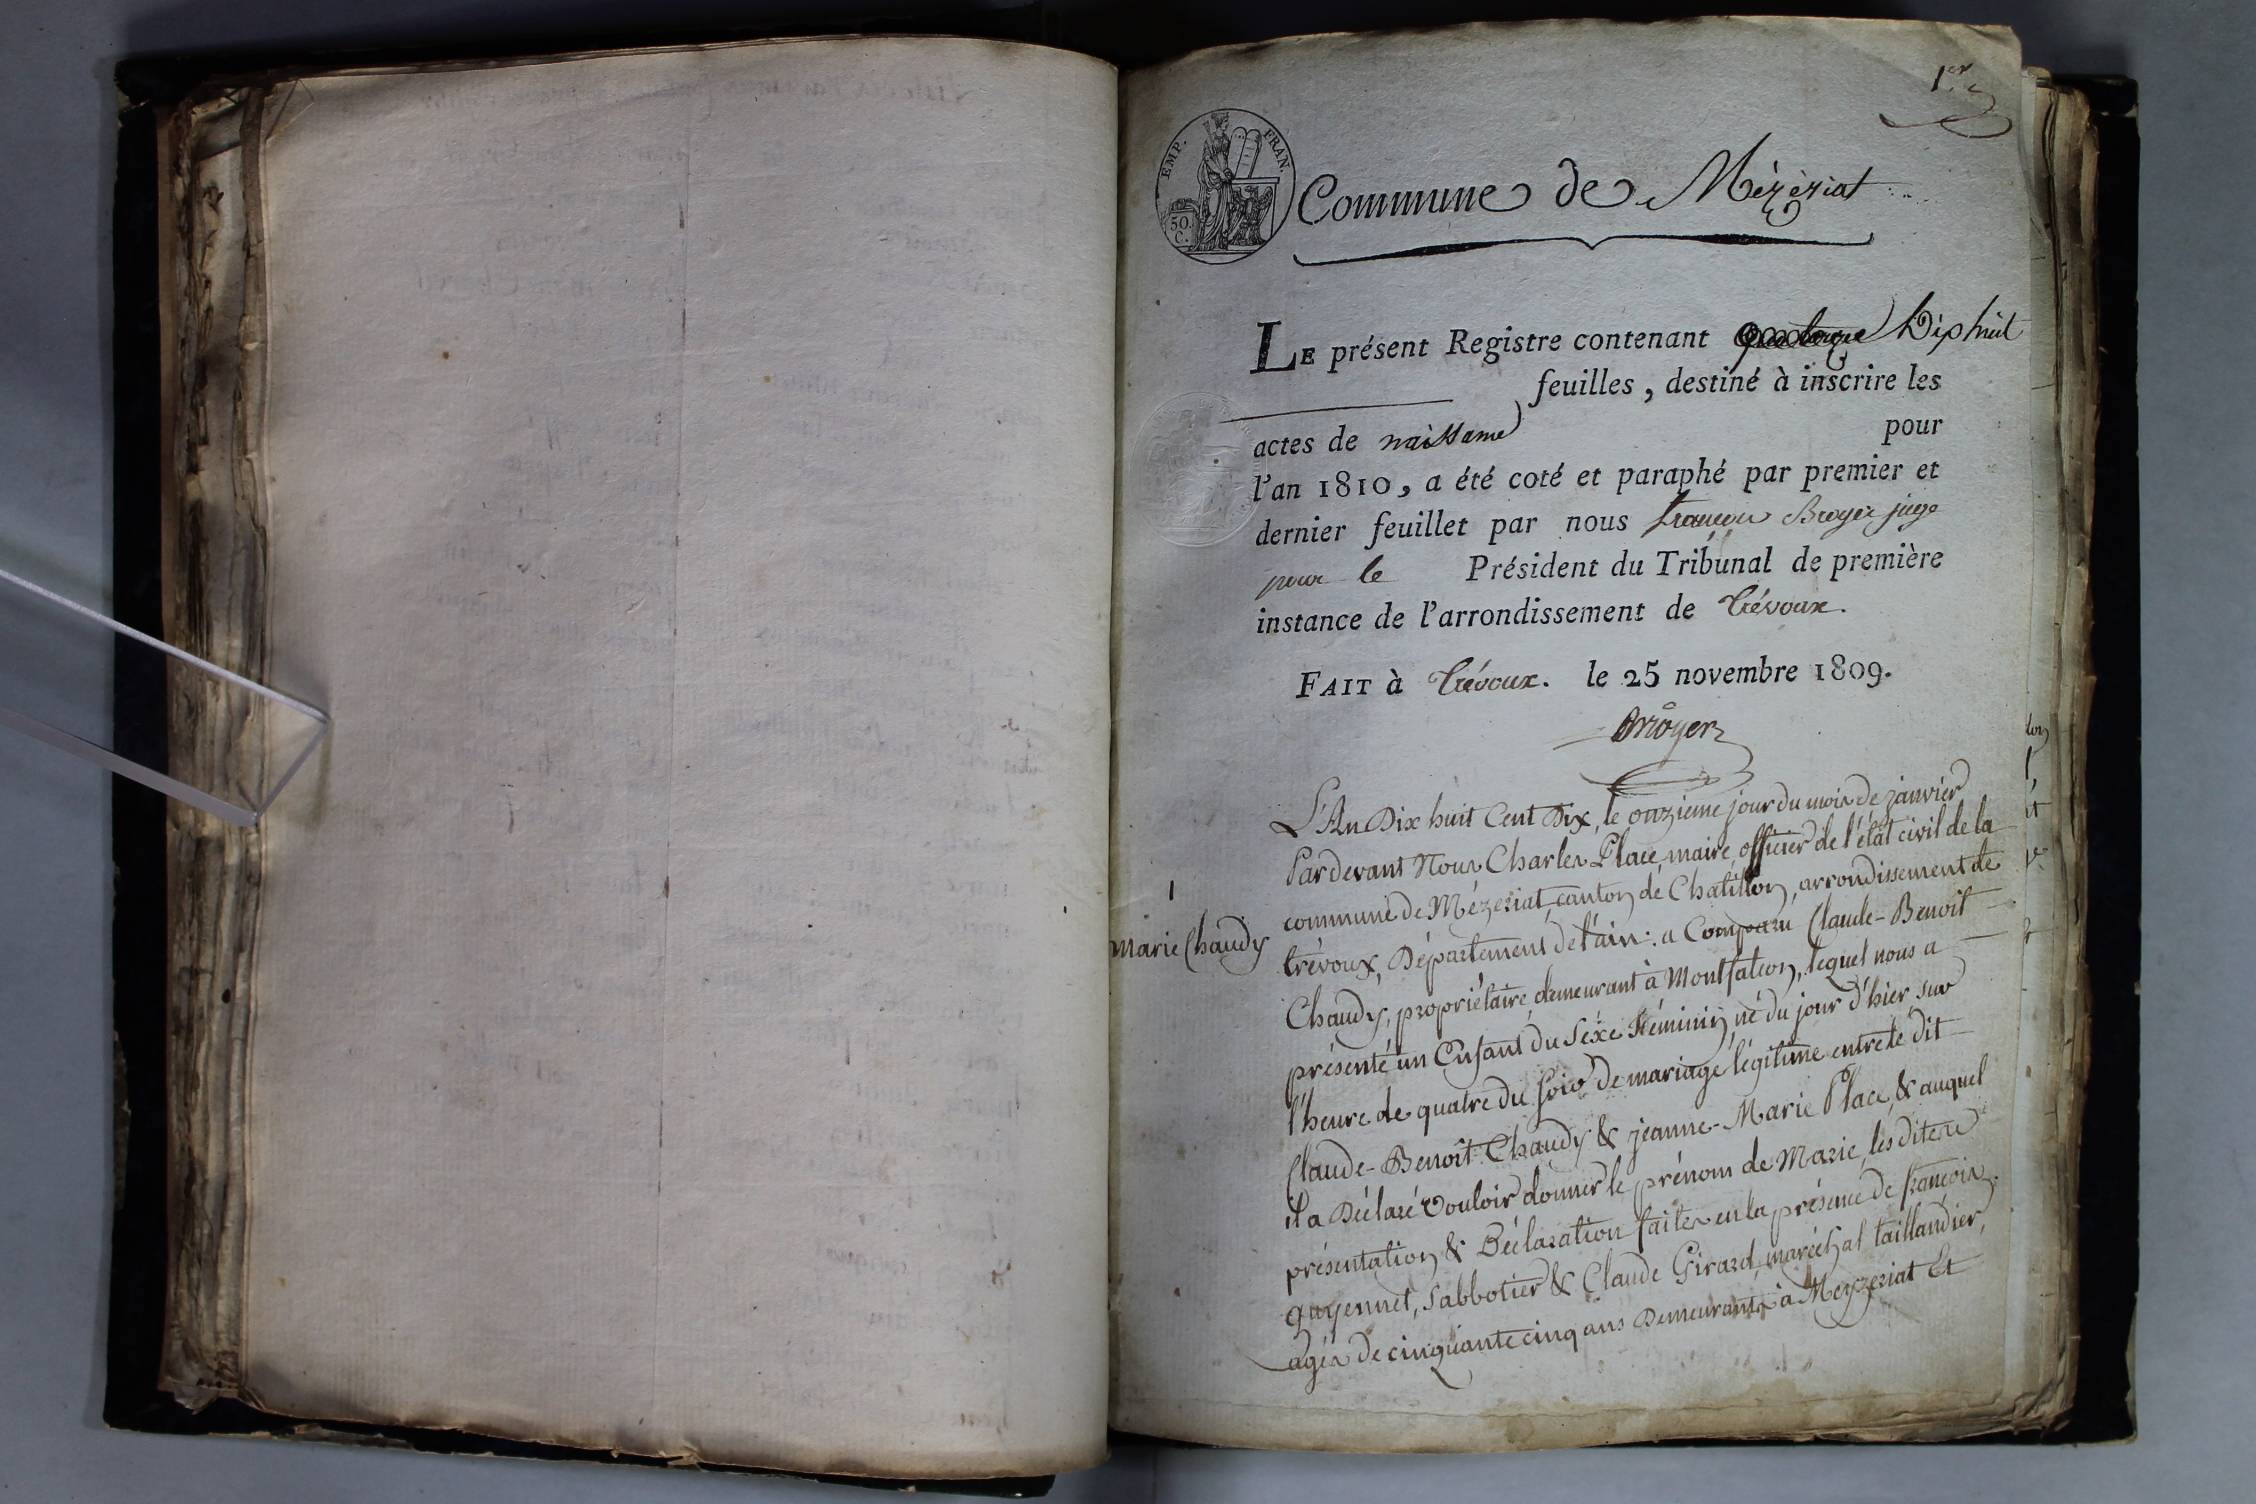 1er
EMP. FRAN.
50.
C.
Commune de Mézériat
LE présent Registre contenant Dix huit
feuilles, destiné à inscrire les
actes de naissance pour
l'an 1810, a été coté et paraphé par premier et
dernier feuillet par nous françois Broyer juge
pour le Président du Tribunal de première
instance de l'arrondissement de Trévoux.
FAIT à Trévoux. le 25 novembre 1809.
Broyer
1
Marie Chaudy
L'An Dix huit Cent Dix, le onzieme jour du mois de janvier
Pardevant Nous Charles Place, maire, officier de l'état civil de la
commune de Mézeriat, canton de Chatillon, arrondissement de
trévoux, Département de l'ain: a Comparu Claude-Benoit
Chaudy, propriétaire, demeurant à Montfalcon, lequel nous a
présenté un Enfant du Sexe féminin, né du jour d'hier sur
l'heure de quatre du soir de mariage légitime entre le dit
Claude-Benoît Chaudy & jeanne-Marie Place, & auquel
il a Déclaré Vouloir donner le prénom de Marie, les dites
présentation & Déclaration faites en la présence de françois
guyennet, sabbotier & Claude Girard, maréchal taillandier,
agés de cinquante cinq ans Demeurants à Meyzeriat Et